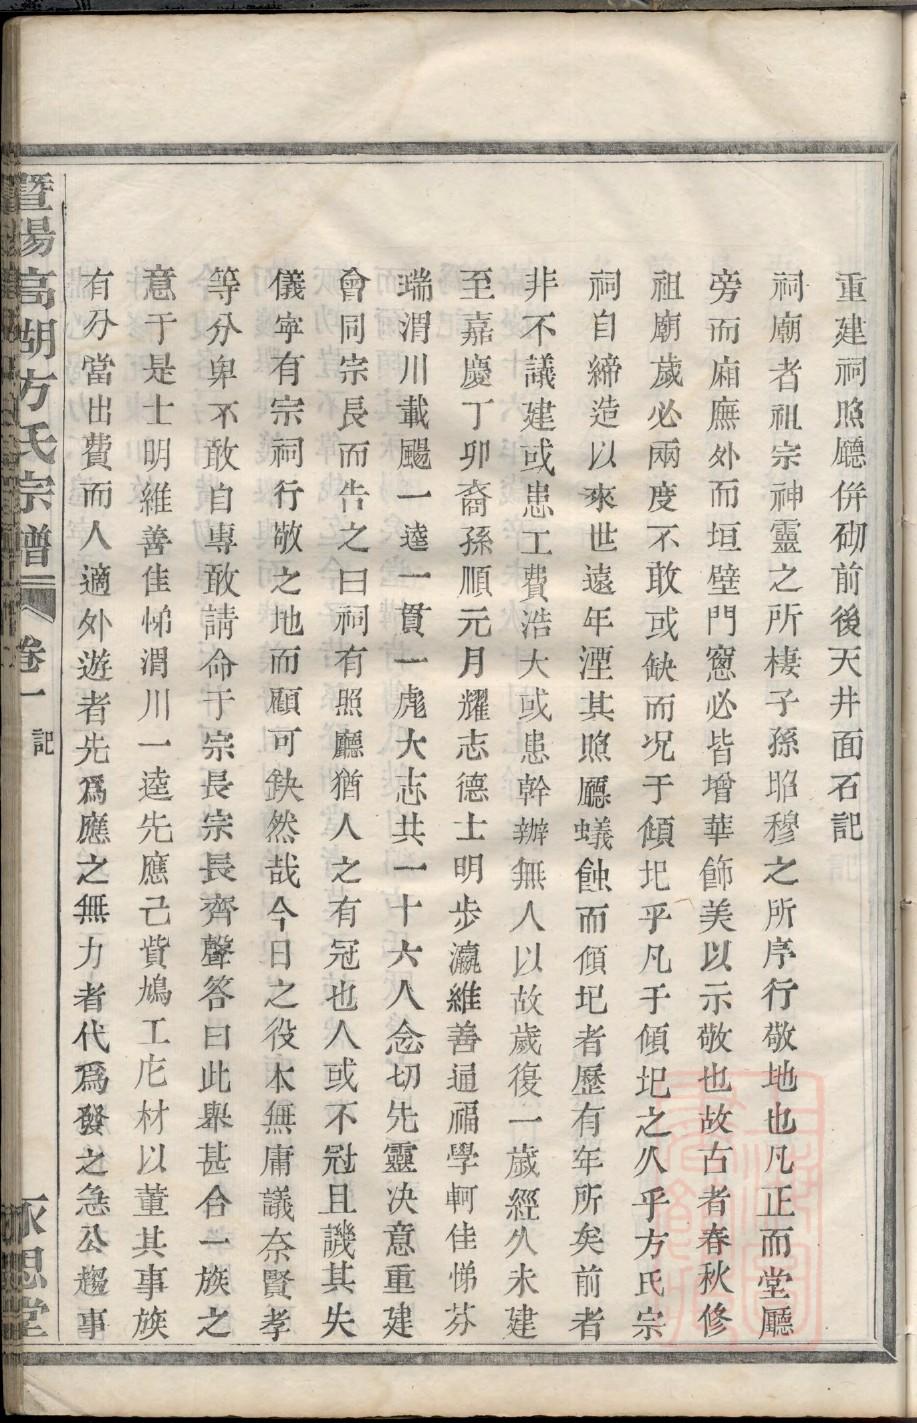 重建祠照廳併砌前後天井面石記
祠廟者祖宗神靈之所棲子孫昭穆之所序行敬地也凡正而堂廳
旁而廂廡外而垣壁門窻必皆增華飾美以示敬也故古者春秋修
祖廟歲必兩度不敢或缺而况于傾圯乎凡于傾圯之久乎方氏宗
祠自締造以來世遠年湮其照廳蟻蝕而傾圯者歷有年所矣前者
非不議建或患工費浩大或患幹辦無人以故歲復一歲經久未建
至嘉慶丁卯裔孫順元月耀志德士明步瀛維善通福學軻佳悌芬
瑞渭川載颺一逵一貫一彪大志共一十六人念切先靈决意重建
會同宗長而告之曰祠有照廳猶人之有冠也人或不冠且譏其失
儀寜有宗祠行敬之地而顧可鈌然哉今日之役木無庸議奈賢孝
等分卑不敢自專敢請命于宗長宗長齊聲答曰此舉甚合一族之
意于是士明維善佳悌渭川一逵先應己貲鳩工庀材以董其事族
有分當出費而人適外遊者先爲應之無力者代爲發之急公趨事
暨陽高湖方氏宗譜 卷一 記 永思堂